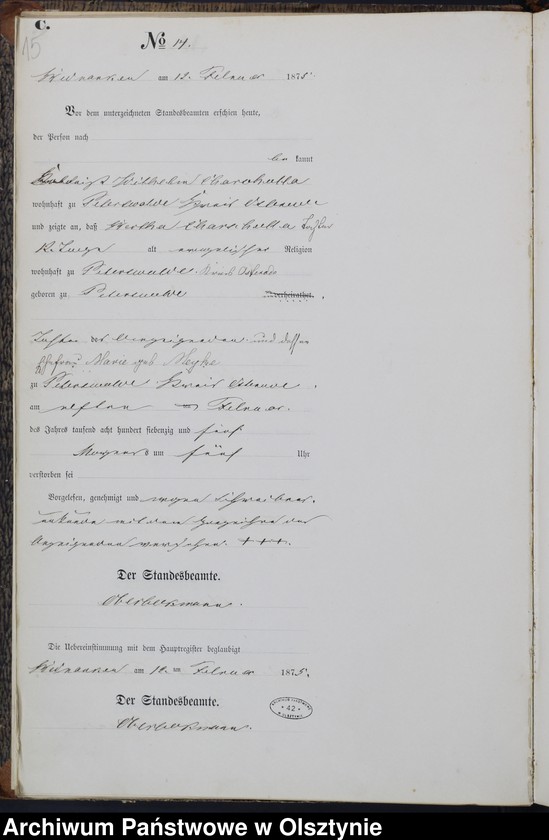 C.
15
No 14.
am 12. Februar 1875.
Vor dem unterzeichneten Standesbeamten erschien heute,
der Person nach
be kannt
Wilhelm Charchulla
wohnhaft zu Peterswalde Kreis Osterode
und zeigte an, daß Bertha Charchulla
alt evangelischer Religion
wohnhaft zu Peterswalde Kreis Osterode
geboren zu Peterswalde
Tochter des Anzeigenden und dessen
Ehefrau Marie geb
zu Peterswalde Kreis Osterode
am elften Februar
des Jahres tausend acht hundert siebenzig und fünf
Morgens um fünf Uhr
verstorben sei
Vorgelesen, genehmigt und wegen Schreibens
unkunde mit den Handzeichen des
Anzeigenden versehen. +++.
Der Standesbeamte.
Die Uebereinstimmung mit dem Hauptregister beglaubigt
am 12. ten Februar 1875.
Der Standesbeamte.
42
Archiwum Państwowe w Olsztynie